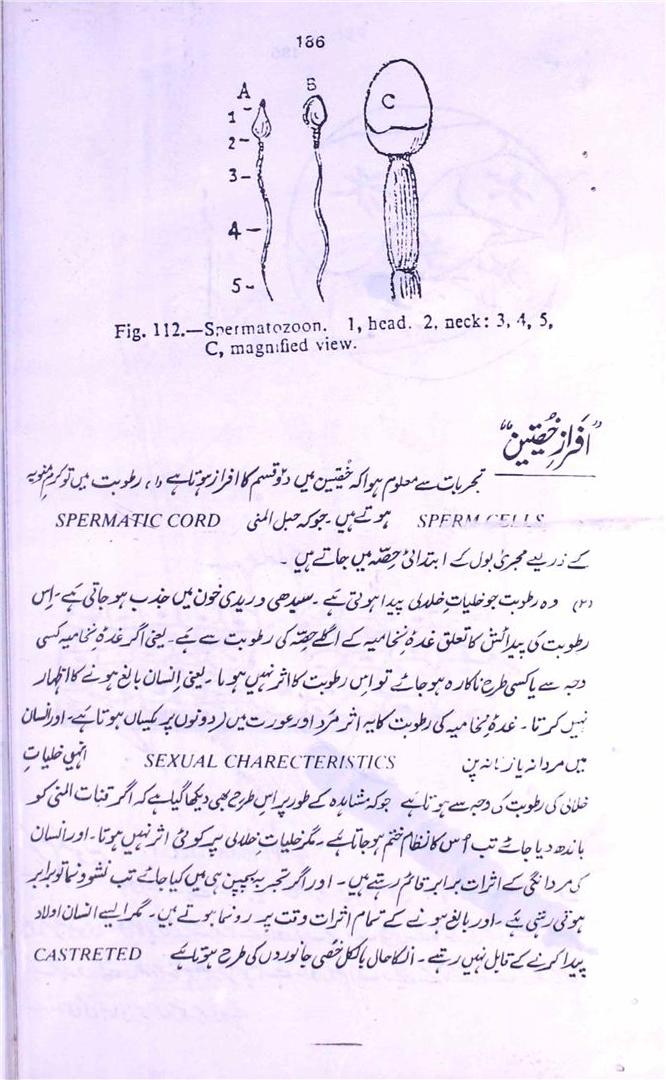 186
A B
C
1
2
3
4
5
Fig. 112.—Spermatozoon. 1, head. 2, neck: 3, 4, 5,
C, magnified view.
"افرازِ خُصِیَتین"
تجربات سے معلوم ہوا کہ خُصیَتین میں دو قسم کا افراز ہوتا ہے (۱) رطوبت میں تو کرمِ منویہ
SPERM CELLS ہوتے ہیں۔ جو کہ حبل المنی SPERMATIC CORD
کے ذریعے مجریٰ بول کے ابتدائی حِصّہ میں جاتے ہیں ۔
(۲) وہ رطوبت جو خلیاتِ خلالی پیدا ہوتی ہے ۔ سیدھی وریدی خون میں جذب ہو جاتی ہے۔ اِس
رطوبت کی پیدائش کا تعلق غدۂ نخامیہ کے اگلے حِصّہ کی رطوبت سے ہے۔ یعنی اگر غدۂ نخامیہ کسی
وجہ سے یا کسی طرح ناکارہ ہو جائے تو اس رطوبت کا اثر نہیں ہوتا ۔ یعنی اِنسان بالغ ہونے کا اظہار
نہیں کرتا ۔ غدۂ نخامیہ کی رطوبت کا یہ اثر مرد اور عورت میں (دونوں پر یکساں ہوتا ہے۔ اور انسان
میں مردانہ یا زنانہ پن SEXUAL CHARECTERISTICS انہی خلیاتِ
خلالی کی رطوبت کی وجہ سے ہوتا ہے جو کہ مشاہدہ کے طور پر اِس طرح بھی دیکھا گیا ہے کہ اگر قنات المنی کو
باندھ دیا جائے تب اُس کا نظام ختم ہو جاتا ہے ۔ مگر خلیاتِ خلالی پر کوئی اثر نہیں ہوتا ۔ اور انسان
کی مردانگی کے اثرات برابر قائم رہتے ہیں ۔ اور اگر تجربہ بچپن ہی میں کیا جائے تب نشوونما تو برابر
ہوتی رہتی ہے ۔ اور بالغ ہونے کے تمام اثرات وقت پر رونما ہوتے ہیں۔ مگر ایسے انسان اولاد
پیدا کرنے کے قابل نہیں رہتے ۔ انکا حال بالکل خصّی جانوروں کی طرح ہوتا ہے CASTRETED